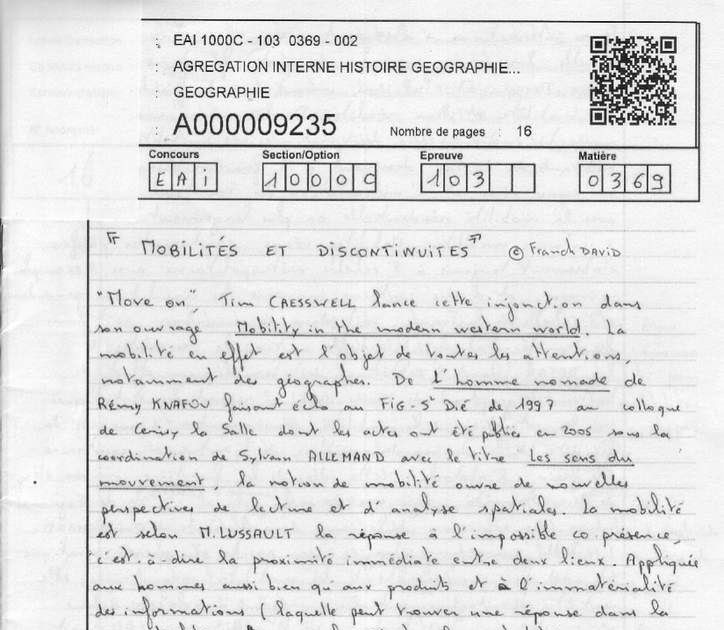 EAI 1000C - 103 0369 - 002
AGREGATION INTERNE HISTOIRE GEOGRAPHIE...
GEOGRAPHIE
A000009235
Nombre de pages : 16
Concours Section/Option Epreuve Matière
EAi 1000C 103 0369
"MOBILITÉS ET DISCONTINUITÉS" © Franck DAVID
"Move on" Tim CRESSWELL lance cette injonction dans
son ouvrage Mobility in the modern western world. La
mobilité en effet est l'objet de toutes les attentions,
notamment des géographes. De L'homme nomade de
RÉMY KNAFOU faisant écho au FIG-St Dié de 1997 au colloque
de Cerisy la Salle dont les actes ont été publiés en 2005 sous la
coordination de Sylvain ALLEMAND avec le titre Les sens du
mouvement, la notion de mobilité ouvre de nouvelles
perspectives de lecture et d'analyse spatiales. La mobilité
est selon M. LUSSAULT la réponse à l'impossible co-présence,
c'est-à-dire la proximité immédiate entre deux lieux. Appliquée
aux hommes aussi bien qu'aux produits et à l'immatérialité
des informations (laquelle peut trouver une réponse dans la